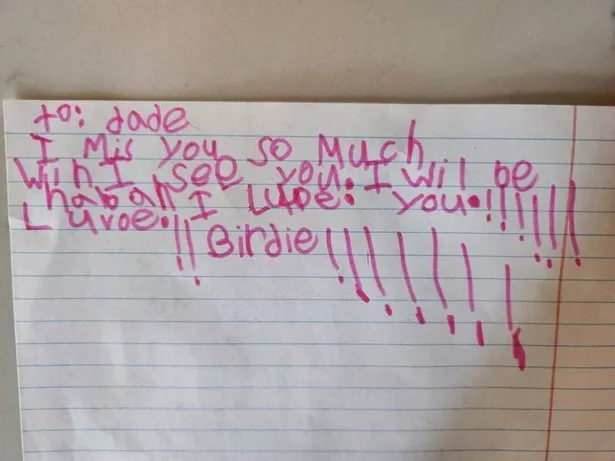 to: dade
I Mis you so Much
Win I see you. I wil be
hapah I Luve. you.!!!!!!
Luvoe.!! Birdie!!!!!!!!